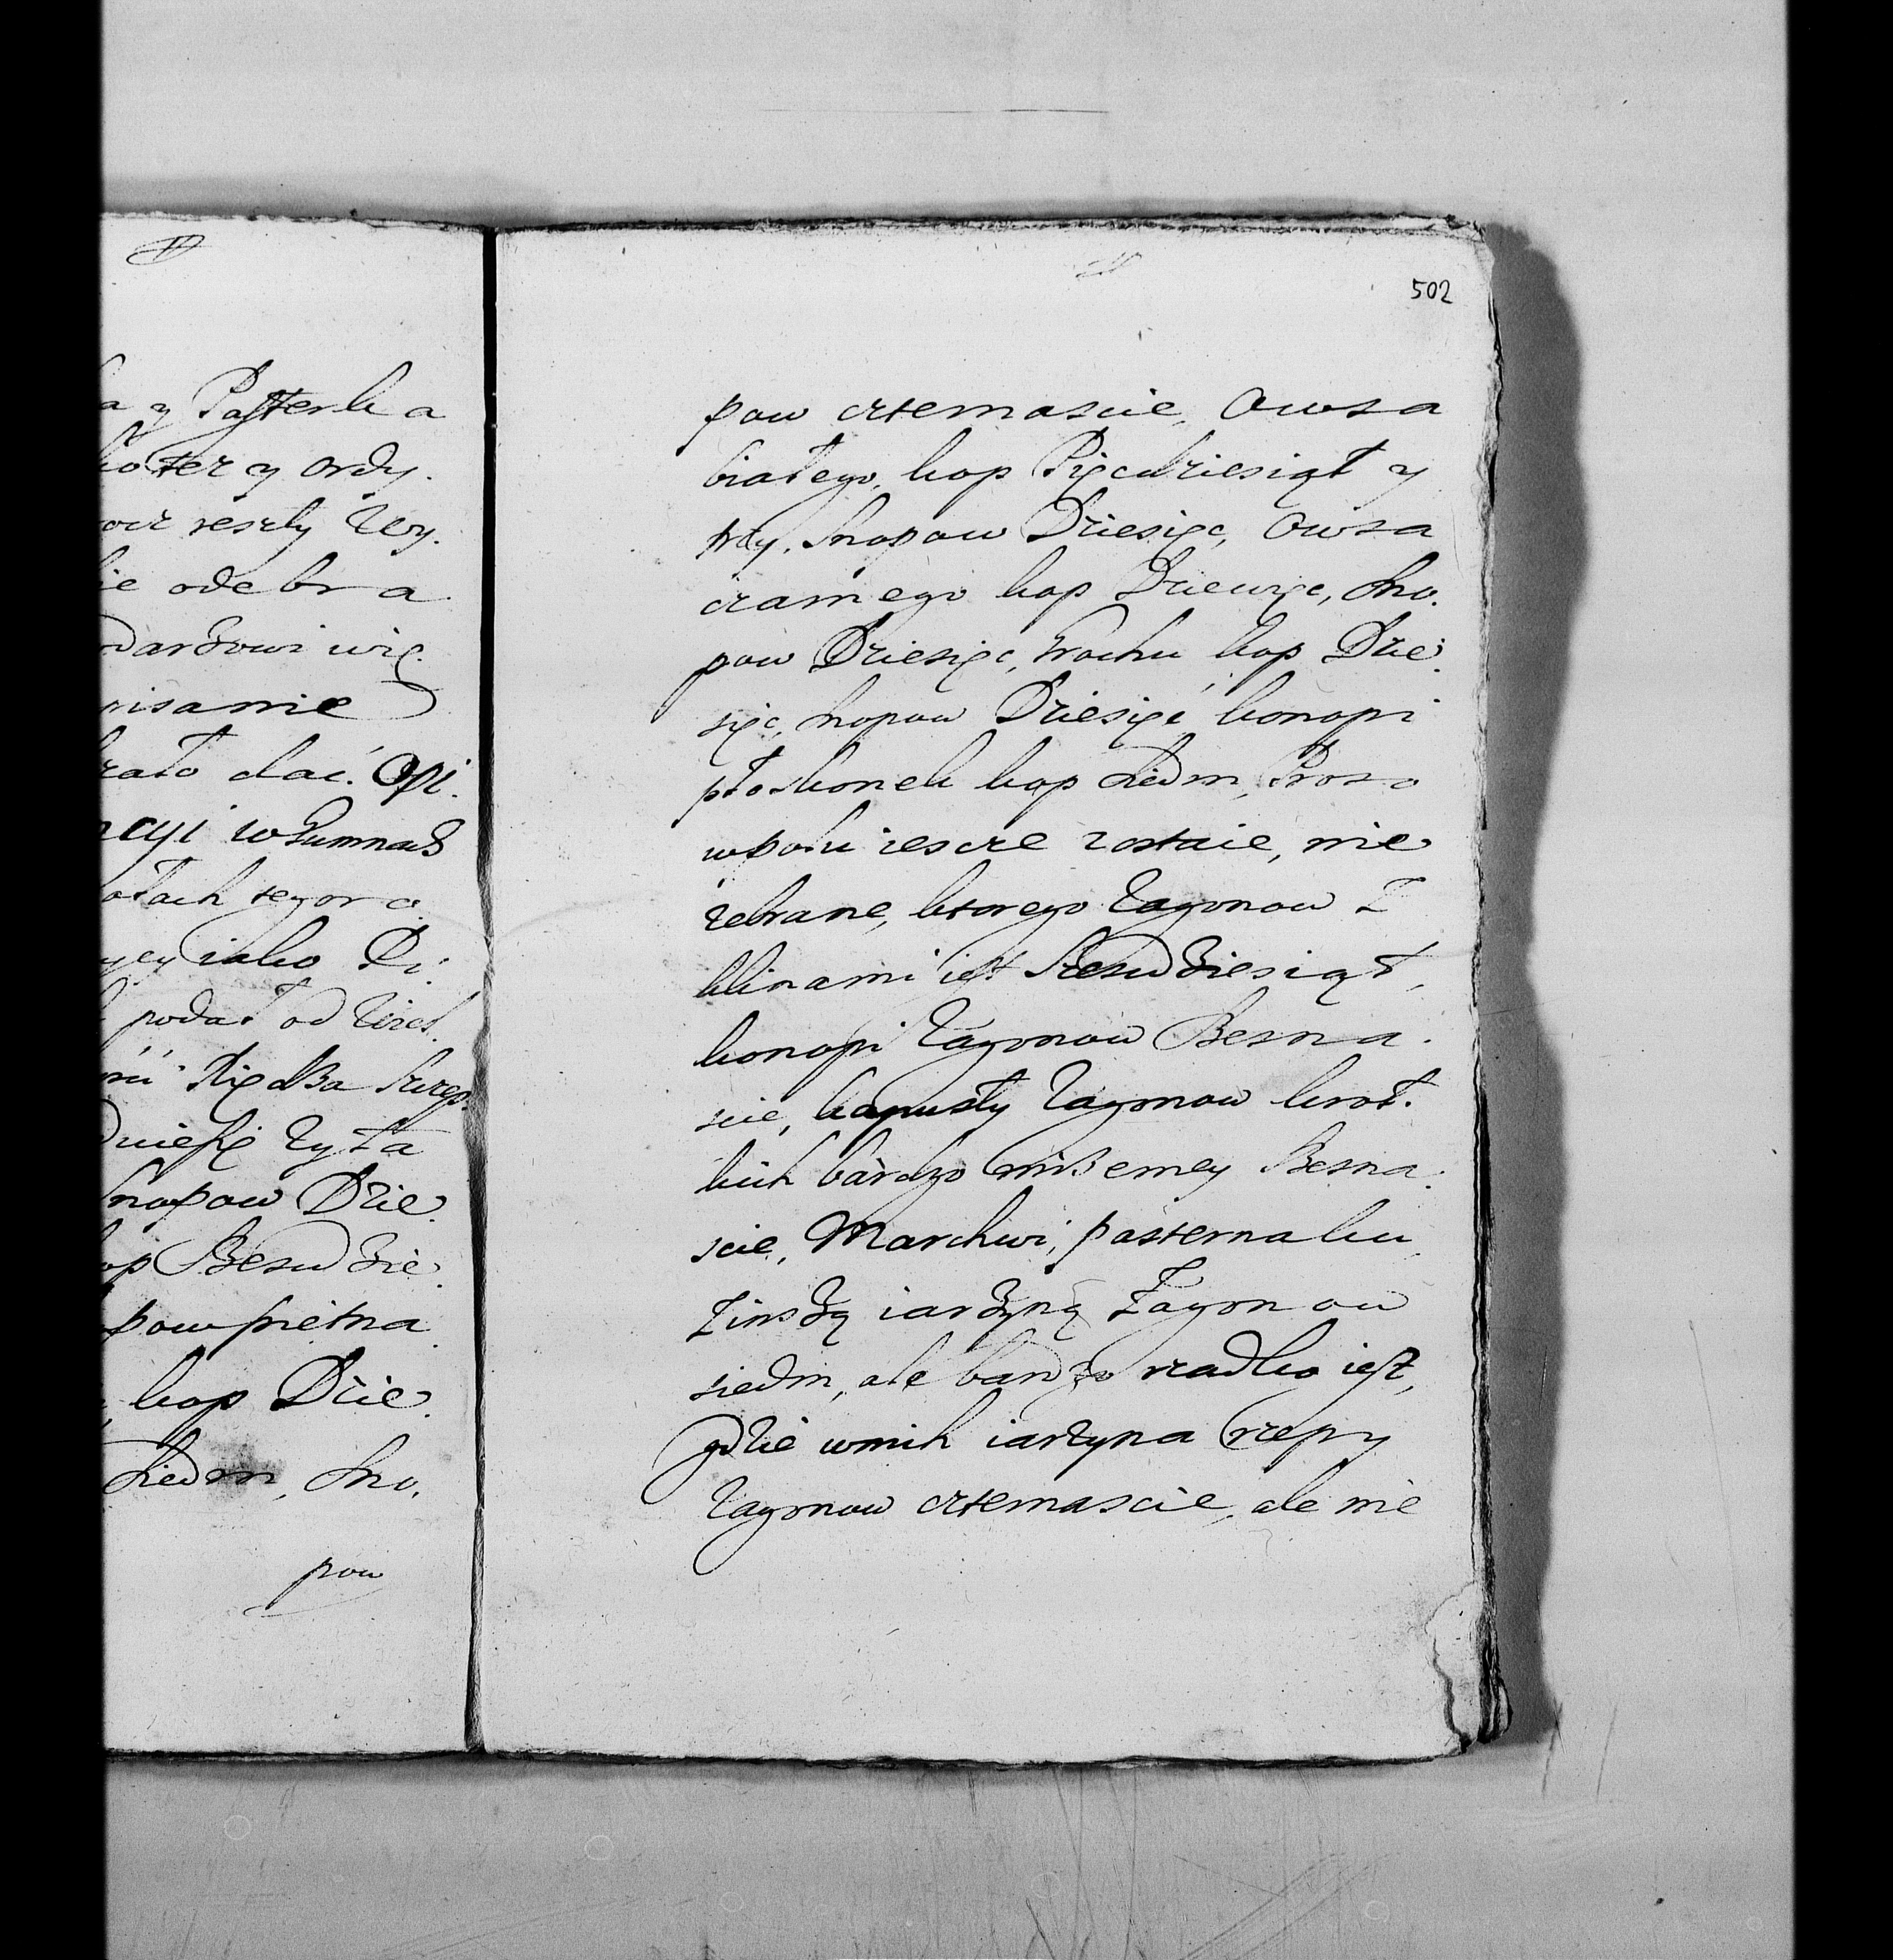 a y Pasterka
koter y ordy.
ie odebra
darzowi wię.
pisanie
rało dac. Opi.
ncyi w Gumnach
otach tego ro
yey iako Di
podat od
Snopow Dzie.
op Szesudzie.
pow pietna
kop Dzie.
siedm, Sno.
pow
502
pow czternascie, Owsa
białego, kop Pięcdziesiąt y
trzy, Snopow Dziesięc, Owsa
czarnego kop Dziewięc, Sno.
pow Dziesięc, Grochu kop Dzie.
sięc, snopow Dziesięć konopi
płoskonek kop siedm, Proso
wpolu ieszcze zostaie, nie
zebrane, ktorego zagonow z
klinami iest Szesudziesiąt,
konopi Zagonow Szesna.
scie, kapusty Zagonow krot.
kich bardzo mizerney Szesna.
scie, Marchwi, pasternaku
z inszą iarzyną Zagonow
siedm, ale bardzo rzadko iest,
gdzie wnich iarzyna rzepy
Zagonow czternascie, ale nie